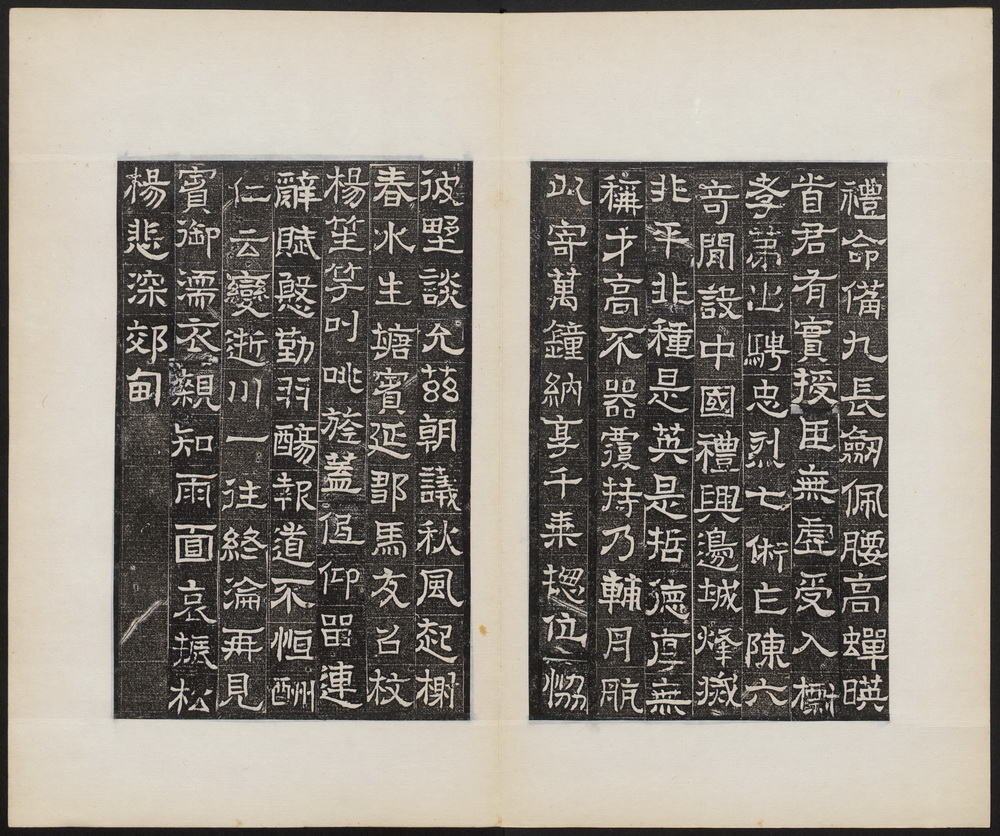 禮命備九長劔佩腰高蟬暎
首君有實授臣無虛受入樹
孝苐出騁忠烈七術亡陳六
奇閒設中國禮興邊城烽滅
非平非種是英是哲德厚無
稱才高不器覆持乃輔舟航
以寄萬鐘納享千乗揔位協
彼野談允茲朝議秋風起樹
春水生塘賓延鄒馬友召枚
楊笙竽叫咷旌蓋低仰留連
辭賦慇勤羽觴報道不恒酬
仁云變逝川一往終淪再見
賓御濡衣親知雨面哀振松
楊悲深郊甸